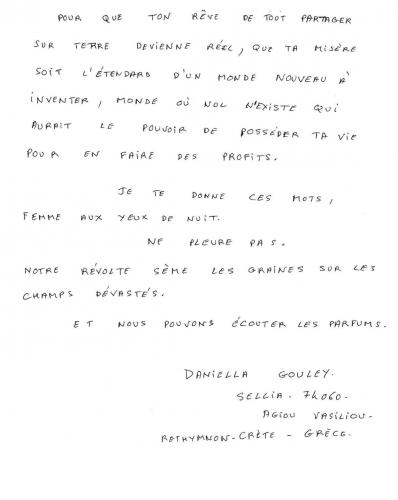 POUR QUE TON RÊVE DE TOUT PARTAGER
SUR TERRE DEVIENNE RÉEL, QUE TA MISÈRE
SOIT L'ÉTENDARD D'UN MONDE NOUVEAU À
INVENTER, MONDE OÙ NUL N'EXISTE QUI
AURAIT LE POUVOIR DE POSSÉDER TA VIE
POUR EN FAIRE DES PROFITS.
JE TE DONNE CES MOTS,
FEMME AUX YEUX DE NUIT.
NE PLEURE PAS.
NOTRE RÉVOLTE SÈME LES GRAINES SUR LES
CHAMPS DÉVASTÉS.
ET NOUS POUVONS ÉCOUTER LES PARFUMS.
DANIELLA GOULEY.
SELLIA. 74060.
AGIOU VASILIOU.
RETHYMNON-CRÈTE - GRÈCE.